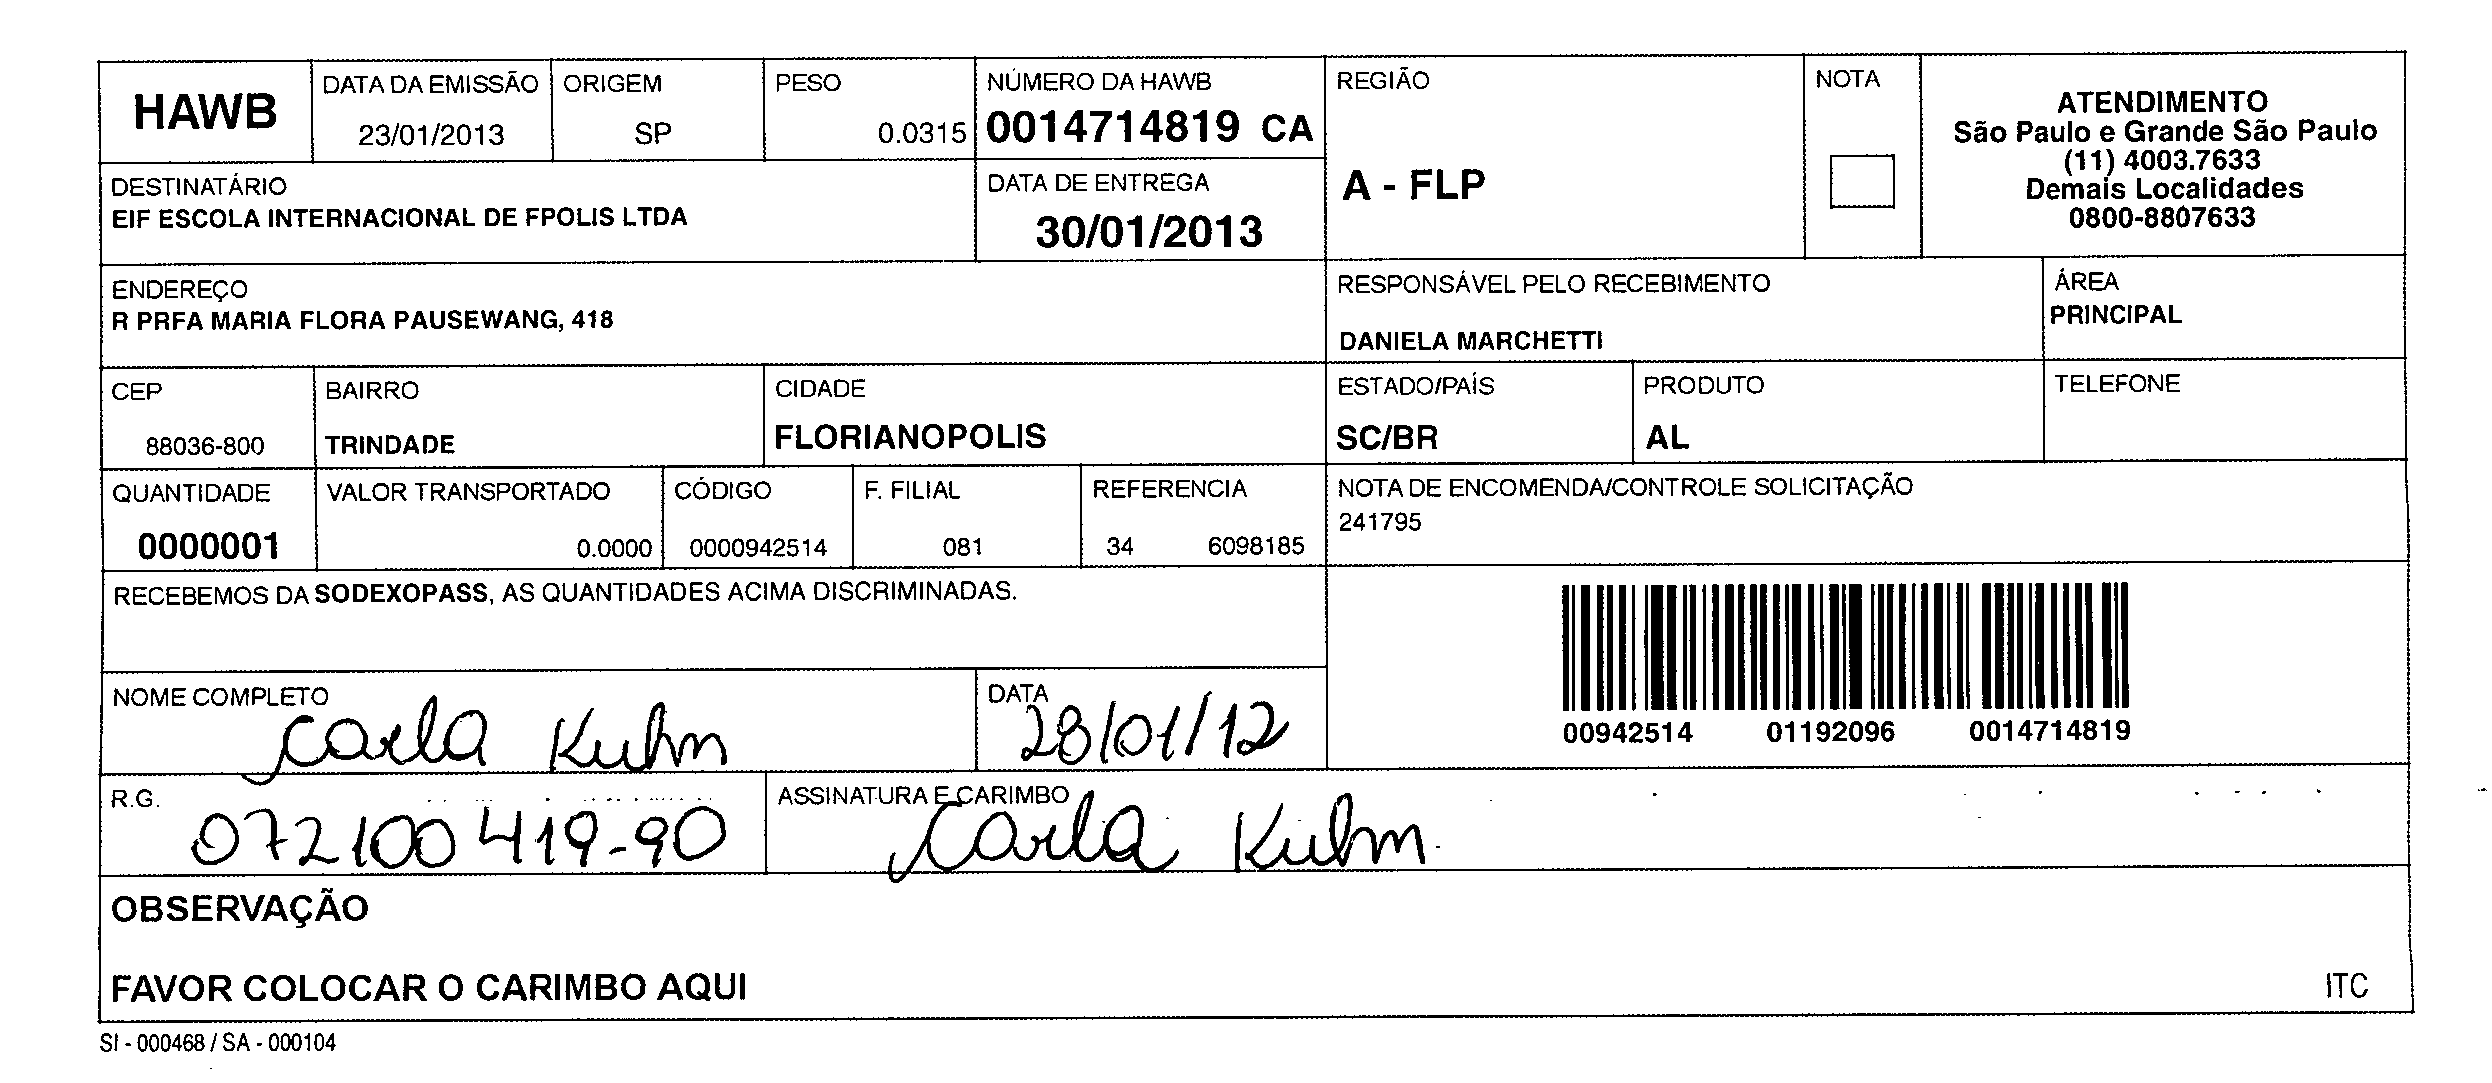 HAWB
DATA DA EMISSÃO
23/01/2013
ORIGEM
SP
PESO
0.0315
NÚMERO DA HAWB
0014714819 CA
REGIÃO
A - FLP
NOTA
ATENDIMENTO
São Paulo e Grande São Paulo
(11) 4003.7633
Demais Localidades
0800-8807633
DESTINATÁRIO
EIF ESCOLA INTERNACIONAL DE FPOLIS LTDA
DATA DE ENTREGA
30/01/2013
ENDEREÇO
R PRFA MARIA FLORA PAUSEWANG, 418
RESPONSÁVEL PELO RECEBIMENTO
DANIELA MARCHETTI
ÁREA
PRINCIPAL
CEP
88036-800
BAIRRO
TRINDADE
CIDADE
FLORIANOPOLIS
ESTADO/PAÍS
SC/BR
PRODUTO
AL
TELEFONE
QUANTIDADE
0000001
VALOR TRANSPORTADO
0.0000
CÓDIGO
0000942514
F. FILIAL
081
REFERENCIA
34 6098185
NOTA DE ENCOMENDA/CONTROLE SOLICITAÇÃO
241795
RECEBEMOS DA SODEXOPASS, AS QUANTIDADES ACIMA DISCRIMINADAS.
00942514 01192096 0014714819
NOME COMPLETO
Carla Kuhn
DATA
28/01/12
R.G.
072100419-90
ASSINATURA E CARIMBO
Carla Kuhn
OBSERVAÇÃO
FAVOR COLOCAR O CARIMBO AQUI
ITC
SI - 000468 / SA - 000104